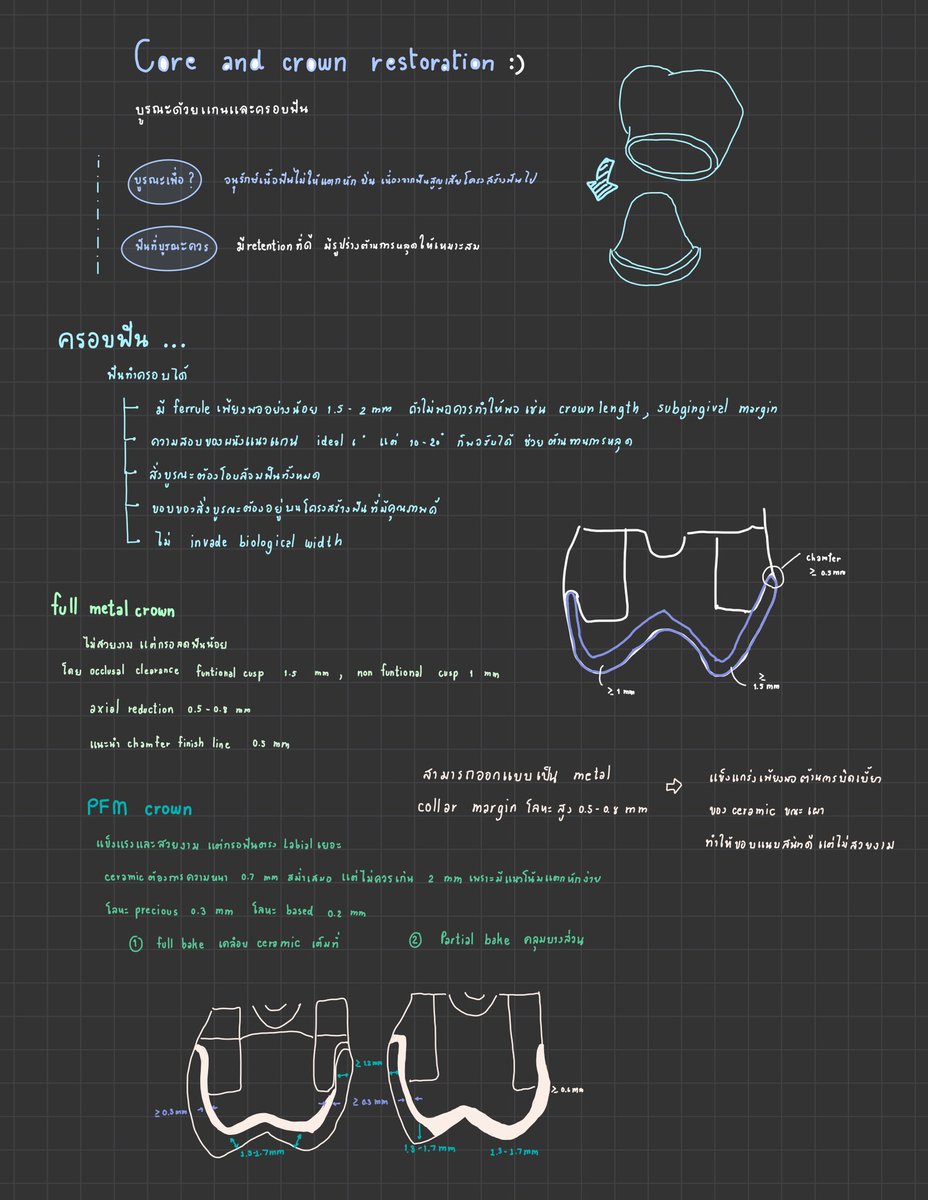 Core and crown restoration :)
บูรณะด้วยแกนและครอบฟัน
บูรณะเพื่อ?
อนุรักษ์เนื้อฟันไม่ให้แตกหัก บิ่น เนื่องจากฟันสูญเสียโครงสร้างฟันไป
ฟันที่บูรณะควร
มี retention ที่ดี มีรูปร่างต้านการหลุดให้เหมาะสม
ครอบฟัน ...
ฟันทำครอบได้
มี ferrule เพียงพออย่างน้อย 1.5 - 2 mm ถ้าไม่พอควรทำให้พอ เช่น crown length, subgingival margin
ความสอบของผนังแนวแกน ideal 6° แต่ 10-20° ก็พอรับได้ ช่วยต้านทานการหลุด
สิ่งบูรณะต้องโอบล้อมฟันทั้งหมด
ขอบของสิ่งบูรณะต้องอยู่บนโครงสร้างฟันที่มีคุณภาพดี
ไม่ invade biological width
chamfer
≥ 0.5 mm
≥ 1 mm
≥
1.5 mm
full metal crown
ไม่สวยงาม แต่กรอลดฟันน้อย
โดย occlusal clearance funtional cusp 1.5 mm, non funtional cusp 1 mm
axial reduction 0.5-0.8 mm
แนะนำ chamfer finish line 0.5 mm
สามารถออกแบบเป็น metal
collar margin โลหะ สูง 0.5-0.8 mm
แข็งแกร่งเพียงพอต้านการบิดเบี้ยว
ของ ceramic ขณะเผา
ทำให้ขอบแนบสนิทดี แต่ไม่สวยงาม
PFM crown
แข็งแรงและสวยงาม แต่กรอฟันตรง Labial เยอะ
ceramic ต้องการความหนา 0.7 mm สม่ำเสมอ แต่ไม่ควรเกิน 2 mm เพราะมีแนวโน้มแตกหักง่าย
โลหะ precious 0.3 mm โลหะ based 0.2 mm
① full bake เคลือบ ceramic เต็มที่
② Partial bake คลุมบางส่วน
≥ 1.2 mm
≥ 0.3 mm
≥ 0.3 mm
≥ 0.6 mm
1.3-1.7 mm
1.3-1.7 mm
1.3-1.7 mm